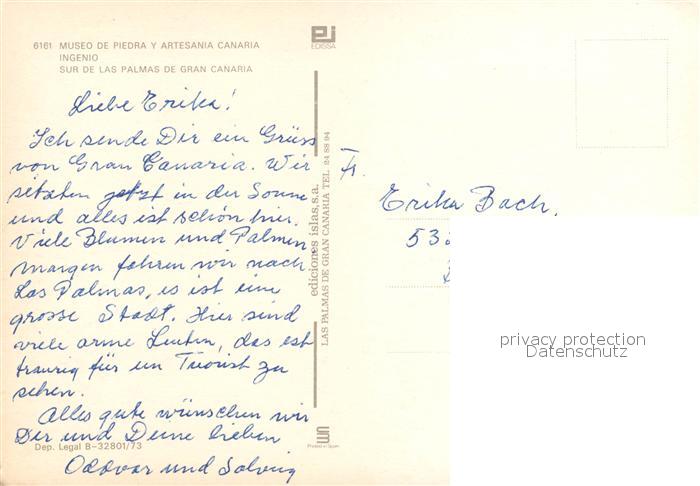 6161 MUSEO DE PIEDRA Y ARTESANIA CANARIA
INGENIO
SUR DE LAS PALMAS DE GRAN CANARIA
EDISSA
Liebe Erika!
Ich sende Dir ein Grüss
von Gran Canaria. Wir
sitzten jetzt in der Sonne
und alles ist schön hier.
Viele Blumen und Palmen
morgen fahren wir nach
Las Palmas, es ist eine
grosse Stadt. Hier sind
viele arme Leuten, das ist
traurig für ein Tuorist zu
sehen.
Alles gute wünschen wir
Dir und Deine lieben
Oddvar und Solveig
Dep. Legal B-32801/73
ediciones islas,s.a.
LAS PALMAS DE GRAN CANARIA TEL. 24 88 94
Printed in Spain
Fr.
Erika Bach.
53
privacy protection
Datenschutz